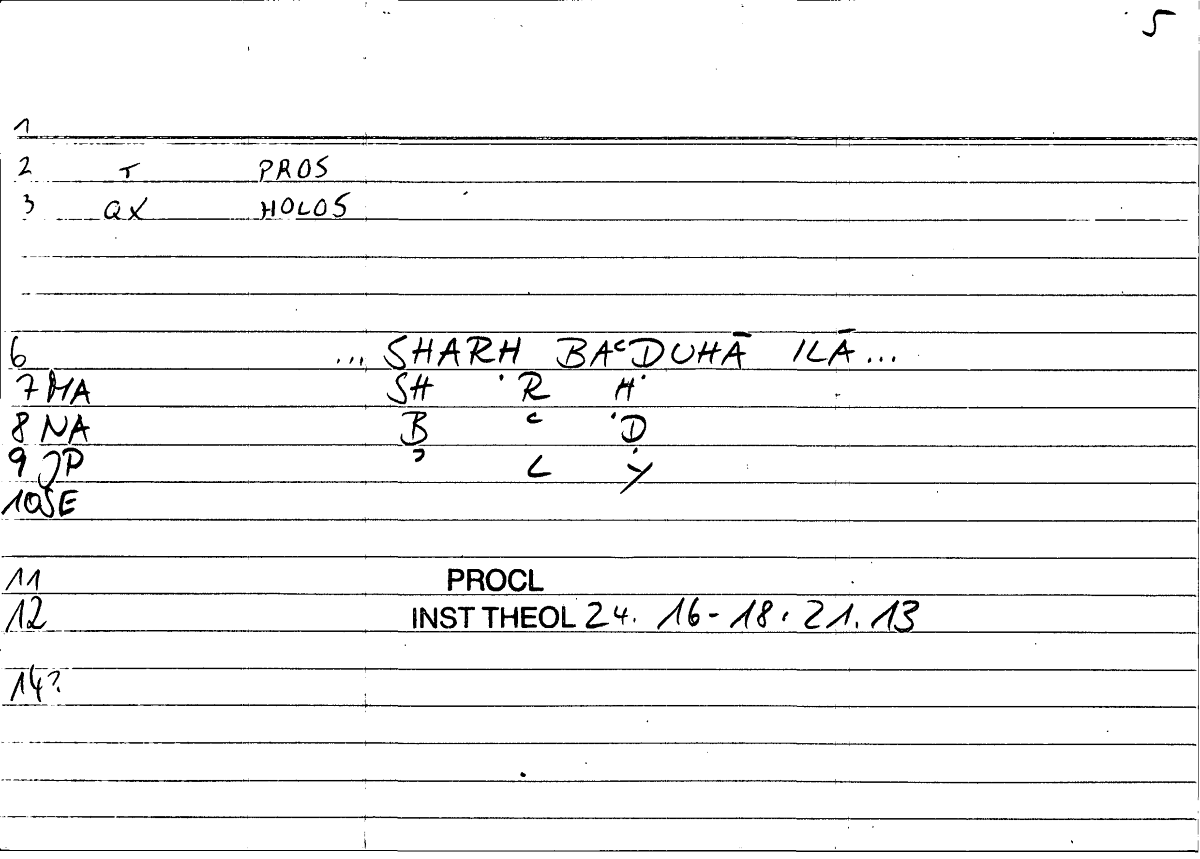 5
1
2 T PROS
3 QX HOLOS
6 ... SHARH BAᶜDUHĀ ILĀ...
7 MA SH R H
8 NA B ᶜ D
9 JP ʾ L Y
10 SE
11 PROCL
12 INST THEOL 24. 16-18. 21. 13
14?